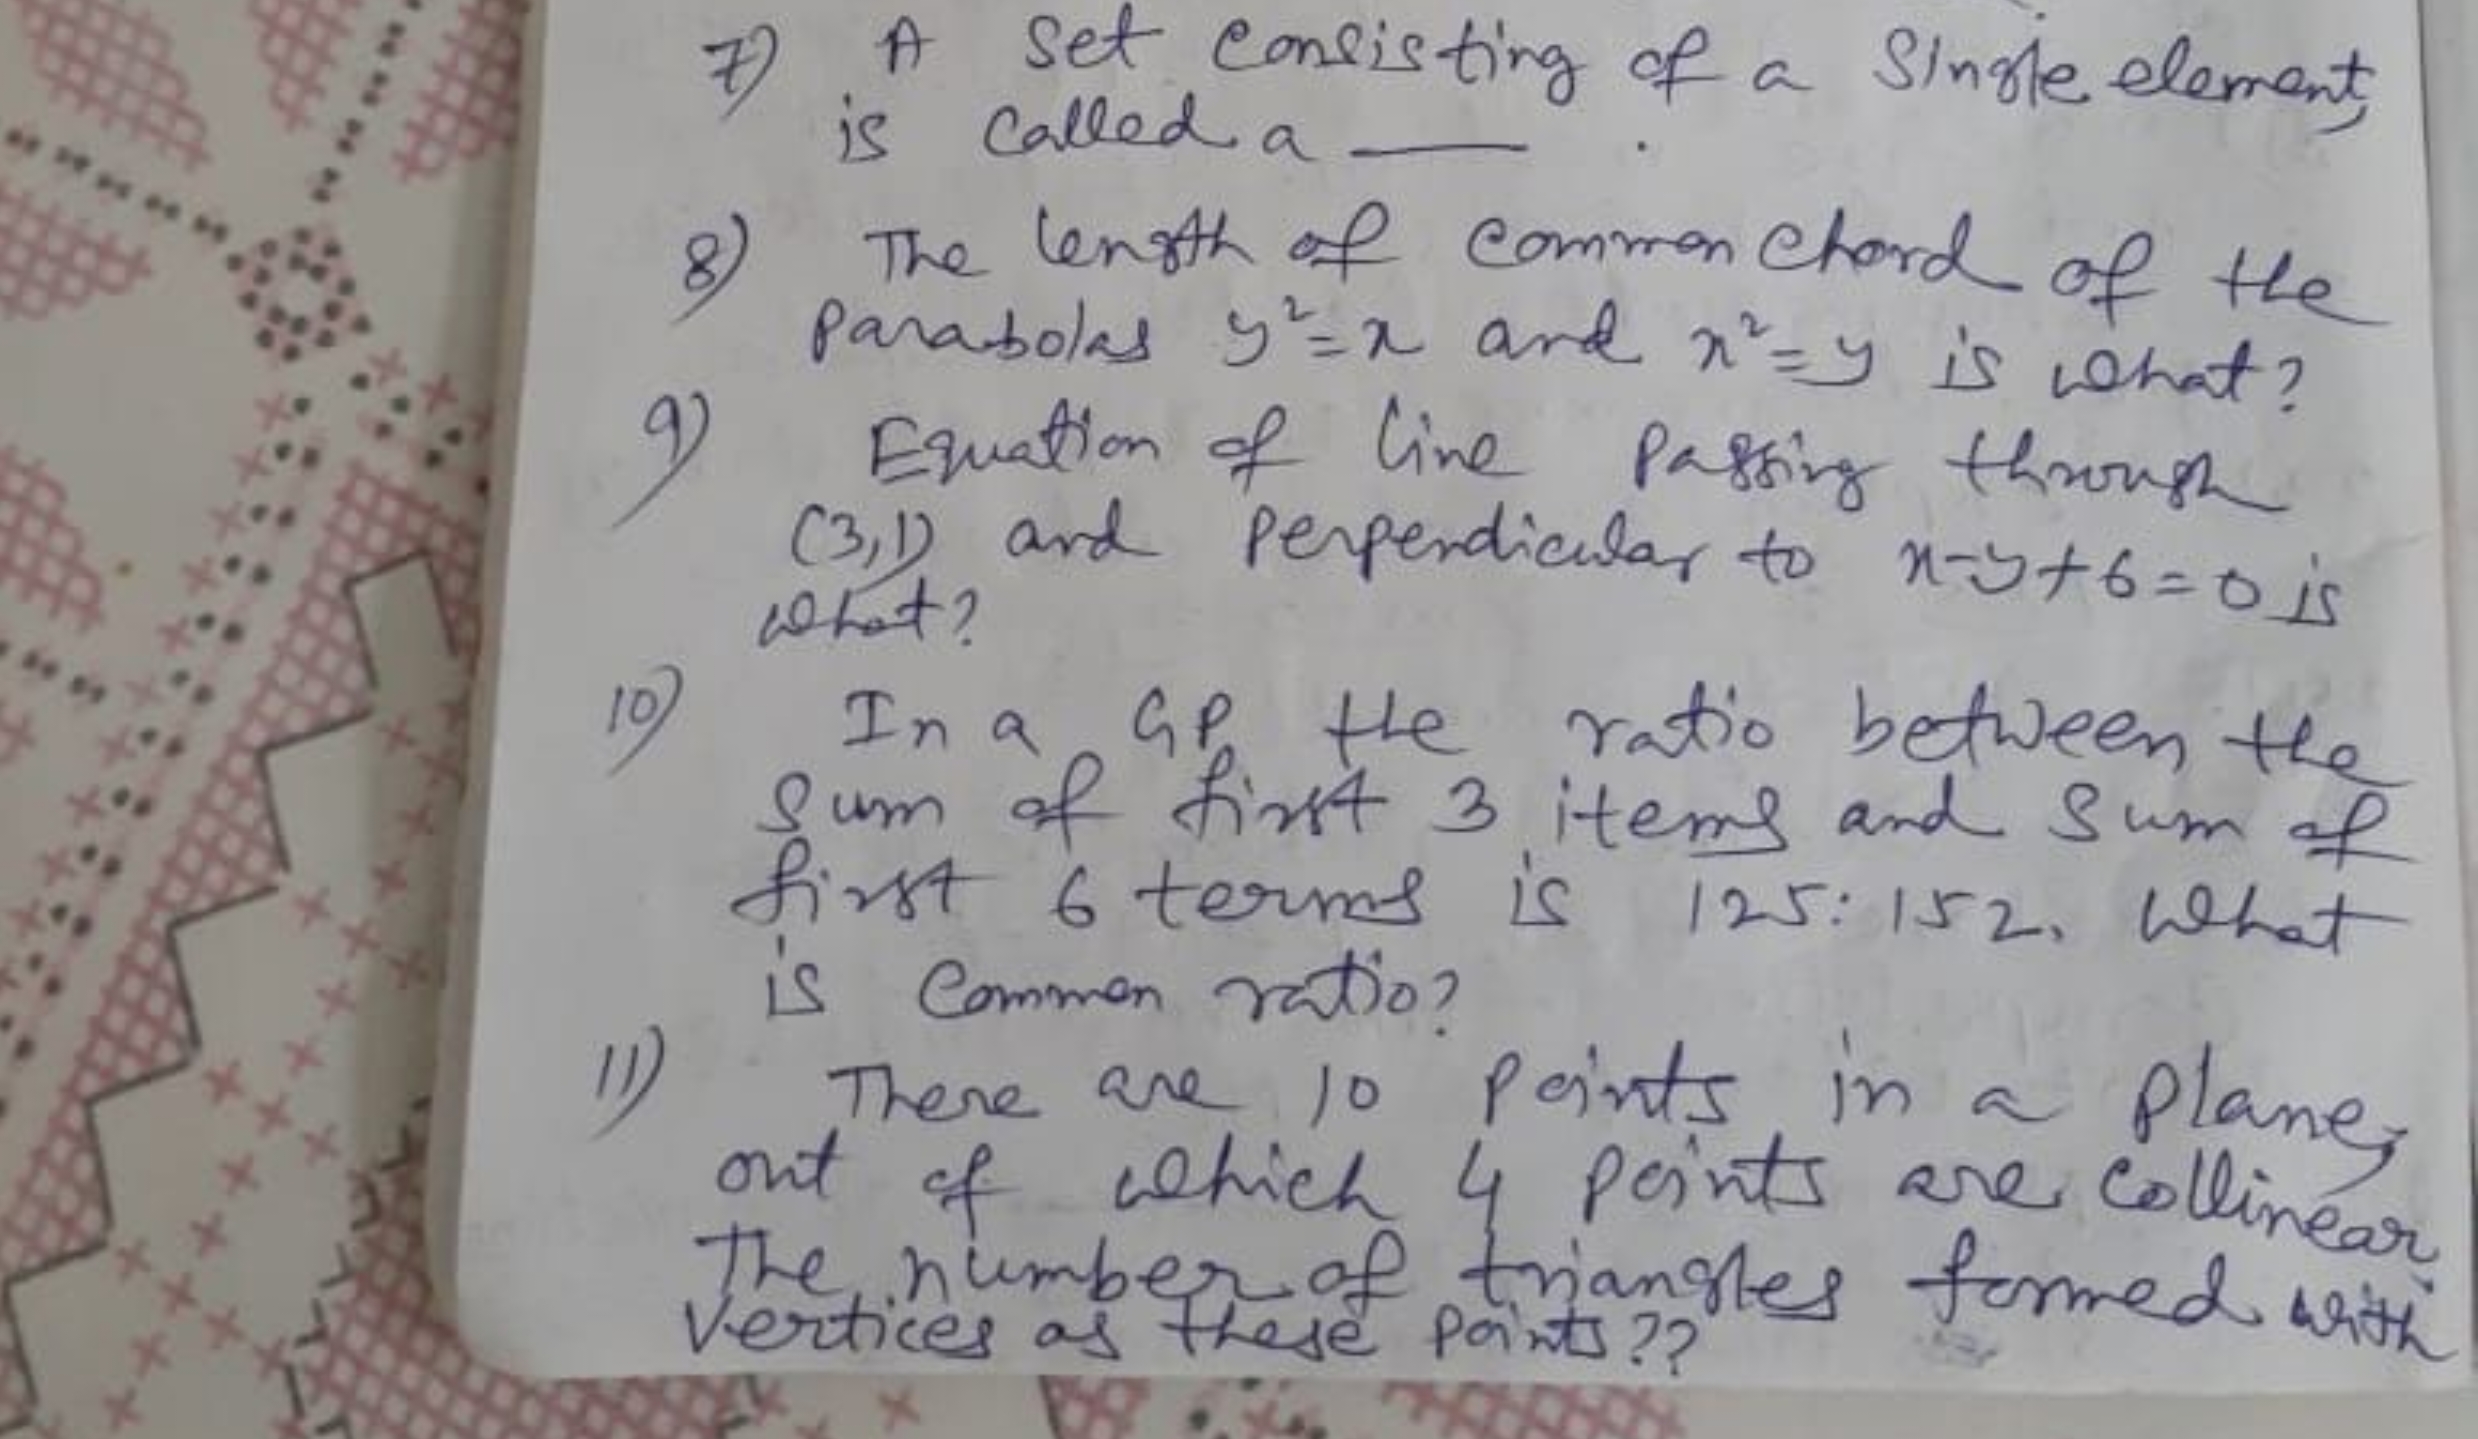 7) A set consisting of a single element,
is called a ___ .
8) The length of common chord of the
parabolas y²=x and x²=y is what?
9) Equation of line passing through
(3,1) and perpendicular to x-y+6=0 is
what?
10) In a GP, the ratio between the
sum of first 3 items and sum of
first 6 terms is 125:152. What
is common ratio?
11) There are 10 points in a plane,
out of which 4 points are collinear.
The number of triangles formed with
vertices as these points??